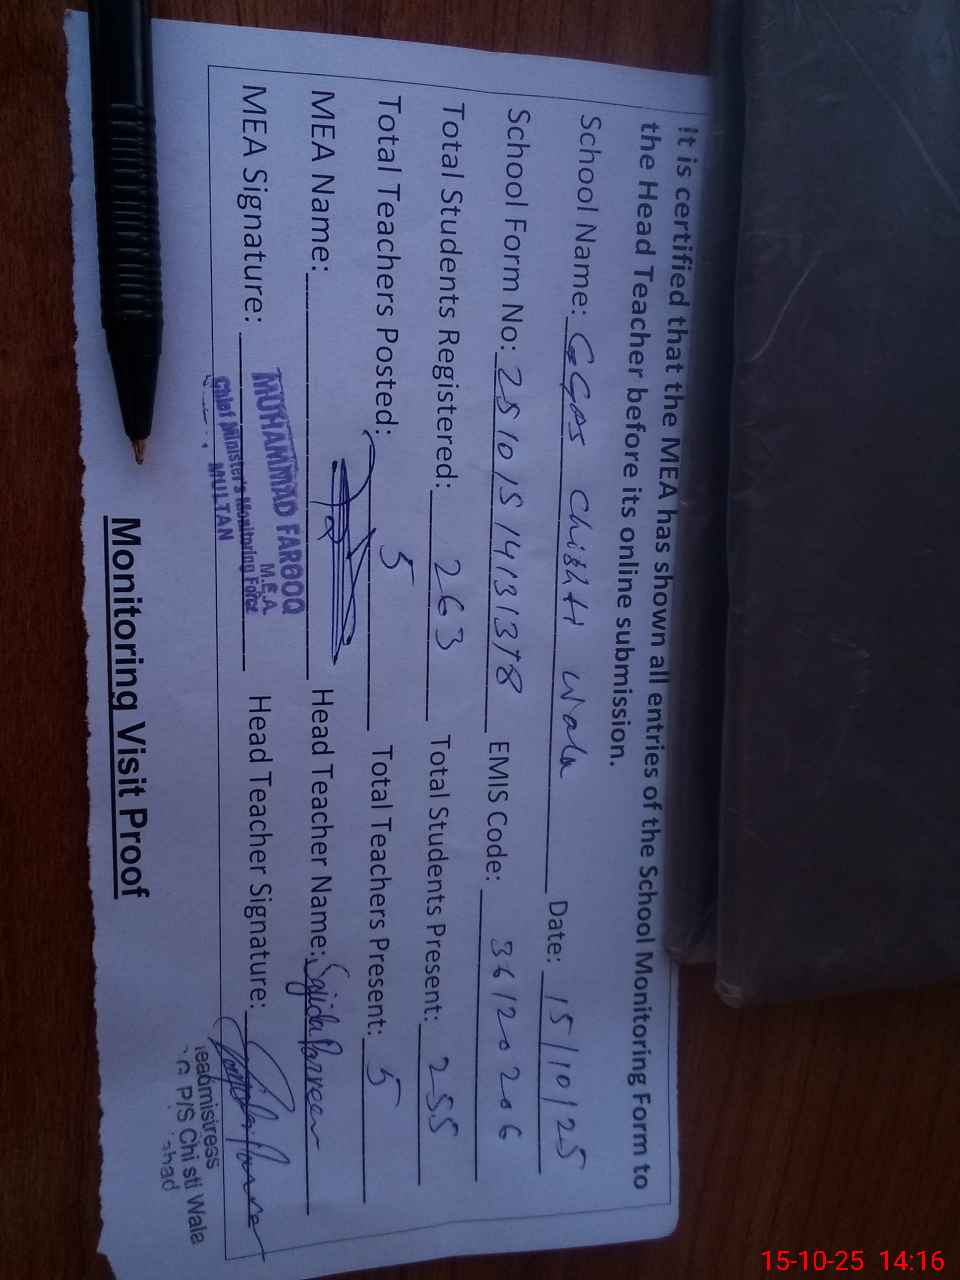 It is certified that the MEA has shown all entries of the School Monitoring Form to
the Head Teacher before its online submission.
School Name: GGPS Chishti Wala Date: 15/10/25
School Form No: 2510151413178 EMIS Code: 36120206
Total Students Registered: 263 Total Students Present: 255
Total Teachers Posted: 5 Total Teachers Present: 5
MEA Name: Head Teacher Name: Sajida Parveen
MEA Signature: Head Teacher Signature:
MUHAMMAD FAROOQ
M.E.A.
Chief Minister's Monitoring Force
MULTAN
eadmistress
G P/S Chi sti Wala
abad
Monitoring Visit Proof
15-10-25 14:16